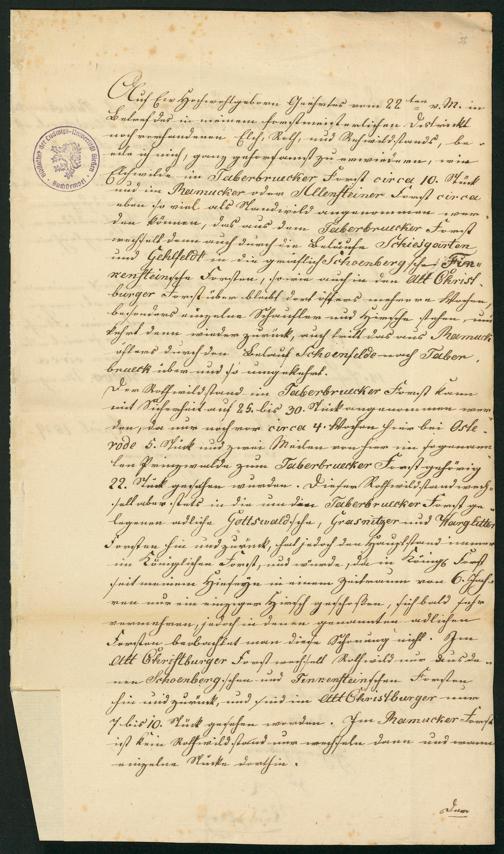 Auf Ew Hochwohlgeborn Geehrtes vom 22ten v. M. in
Betreff des in meinem forstmeisterlichen Districkt
noch vorhandenen Elch, Roth, und Rehwildstands, be-
eile ich mich, ganz gehorsamst zu erwiedern, wie
Elchwild im Taberbrucker Forst circa 10. Stück
und im Ramucker oder Allensteiner Forst circa
eben so viel als Standwild angenommen wer-
den können, das aus dem Taberbrucker Forst
wechselt dann auch durch die Beläufe Schiesgarten
und Gehlfeldt in die gräflich Schoenbergschen Fin-
kensteinsche Forsten, so wie auch in den Altt Christ-
burger Forst über bleibt dort öfters mehrere Wochen,
besonders einzelne Schaufler und Hirsche stehen, und
kehrt dann wieder zurück, auch tritt das aus Ramuck
öfters durch den Belauf Schoenfelde nach Taber-
brueck über und so umgekehrt.
Der Rothwildstand im Taberbruecker Forst kann
mit Sicherheit auf 25. bis 30. Stück angenommen wer-
den, da nur noch vor circa 4. Wochen hier bei Oste-
rode 5. Stück und zwei Meilen von hier im sogenann-
ten Prinzwalde zum Taberbruecker Forst gehörig
22. Stück gesehen wurden. Dieser Rothwildstand wech-
selt aber stets in die um den Taberbruecker Forst ge-
legenen adliche Gottswaldsche, Grasnitzer und Warglitter
Forsten hin und zurück, hat jedoch den Hauptstand immer
im Königlichen Forst, und würde, da im Königs Forst
seit meinem Hierseyn in einem Zeitraum von 6. Jah-
ren nur ein einziger Hirsch geschossen, sich bald sehr
vermehren, jedoch in denen genannten adlichen
Forsten beobachtet man diese Schonung nicht. Im
Altt Christburger Forst wechselt Rothwild nur aus de-
nen Schoenbergschen und Finnkensteinschen Forsten
hin und zurück, und sind im Altt Christburger nur
7. bis 10. Stück gesehen worden. Im Ramucker Forst
ist kein Rothwildstand nur wechseln dann und wann
einzelne Stücke dorthin.
Der